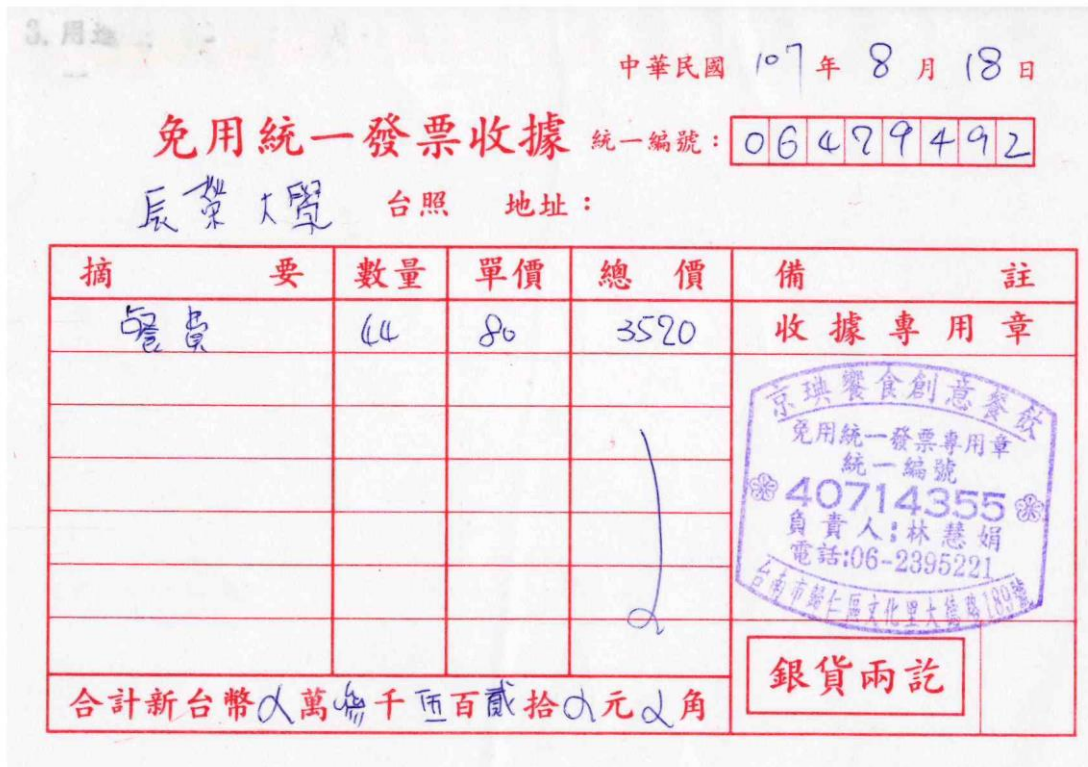 3. 用途
中華民國 107 年 8 月 18 日
免用統一發票收據 統一編號：06479492
長榮大學 台照 地址：
摘要 數量 單價 總價 備註
餐費 44 80 3520 收據專用章
京琠饗食創意餐飲
免用統一發票專用章
統一編號
40714355
負責人:林慧娟
電話:06-2395221
台南市歸仁區文化里大德路189號
銀貨兩訖
合計新台幣 萬參千伍百貳拾 元 角